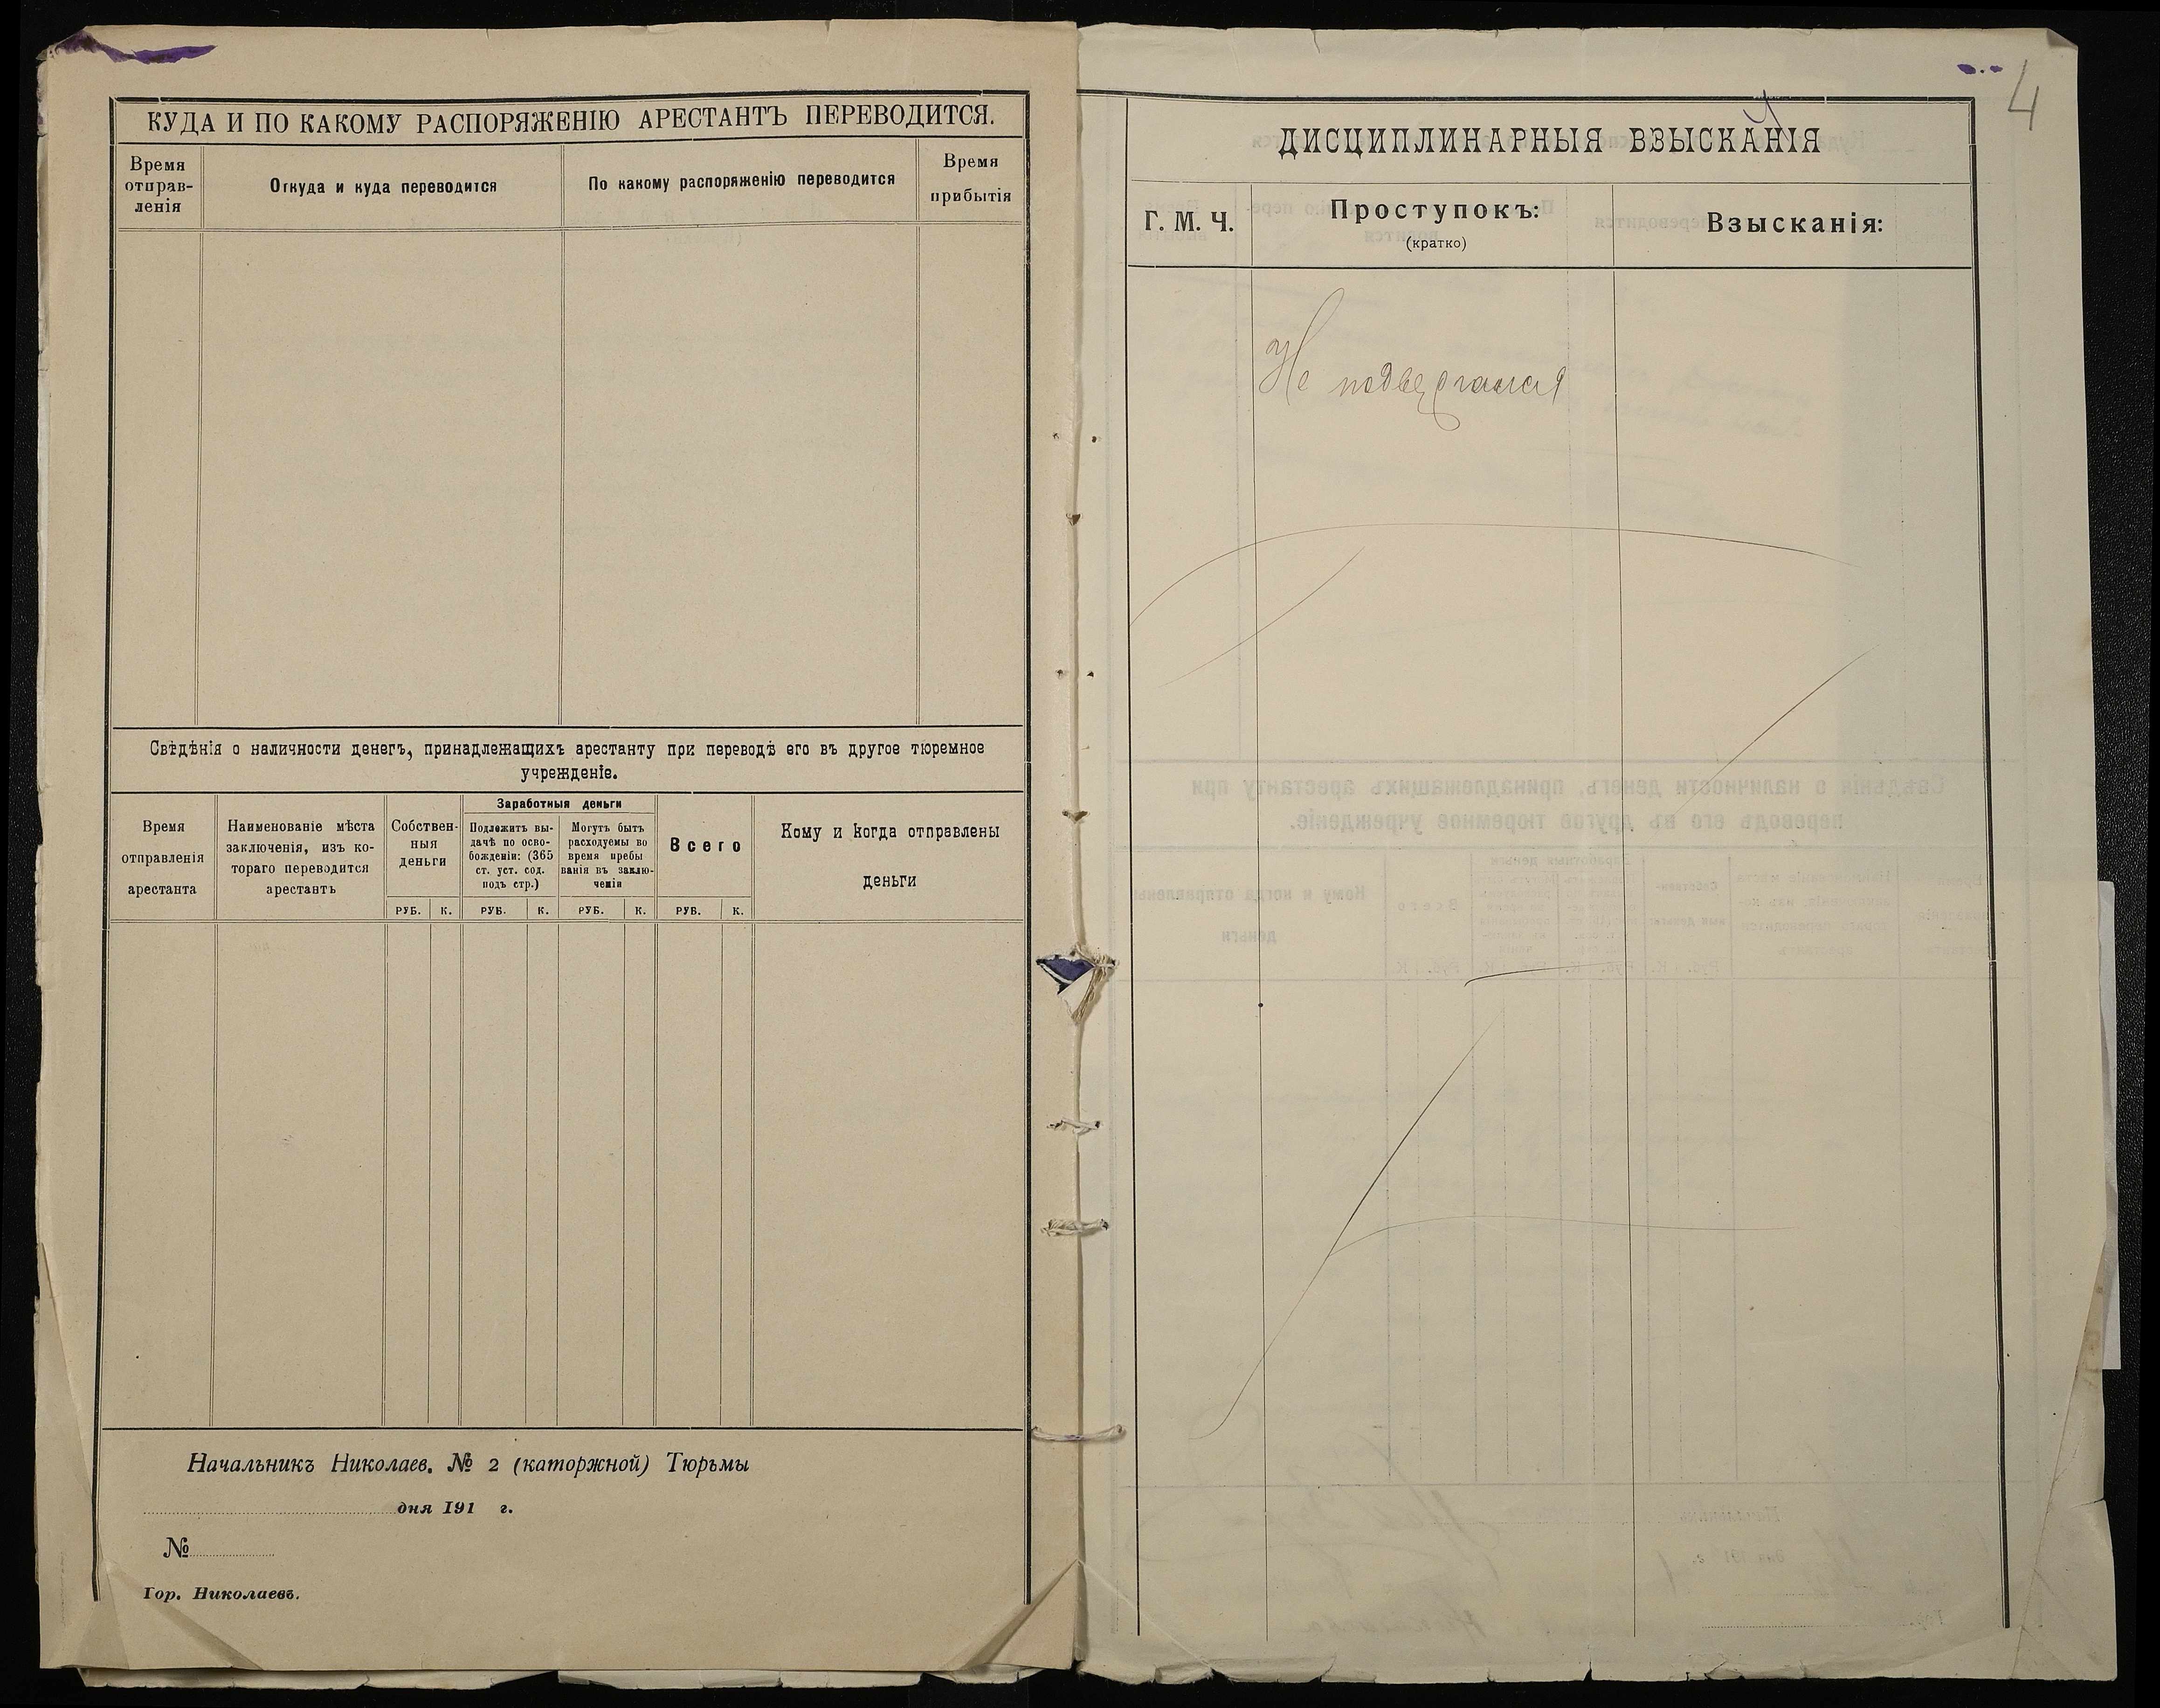 КУДА И ПО КАКОМУ РАСПОРЯЖЕНІЮ АРЕСТАНТЪ ПЕРЕВОДИТСЯ.
Время
отправ-
ленія
Откуда и куда переводится
По какому распоряженію переводится
Время
прибытія
Свѣдѣнія о наличности денегъ, принадлежащихъ арестанту при переводѣ его въ другое тюремное
учрежденіе.
Время
отправленія
арестанта
Наименованіе мѣста
заключенія, изъ ко-
тораго переводится
арестантъ
Собствен-
ныя
деньги
Заработныя деньги
Подлежитъ вы-
дачѣ по осво-
божденіи: (365
ст. уст. сод.
подъ стр.)
Могутъ быть
расходуемы во
время пребы
ванія въ заклю-
ченіи
Всего
Кому и когда отправлены
деньги
РУБ. К. РУБ. К. РУБ. К. РУБ. К.
Начальникъ Николаев. № 2 (каторжной) Тюрьмы
дня 191 г.
№
Гор. Николаевъ.
4
ДИСЦИПЛИНАРНЫЯ ВЗЫСКАНІЯ
Г. М. Ч.
Проступокъ:
(кратко)
Взысканія:
Не подвергался